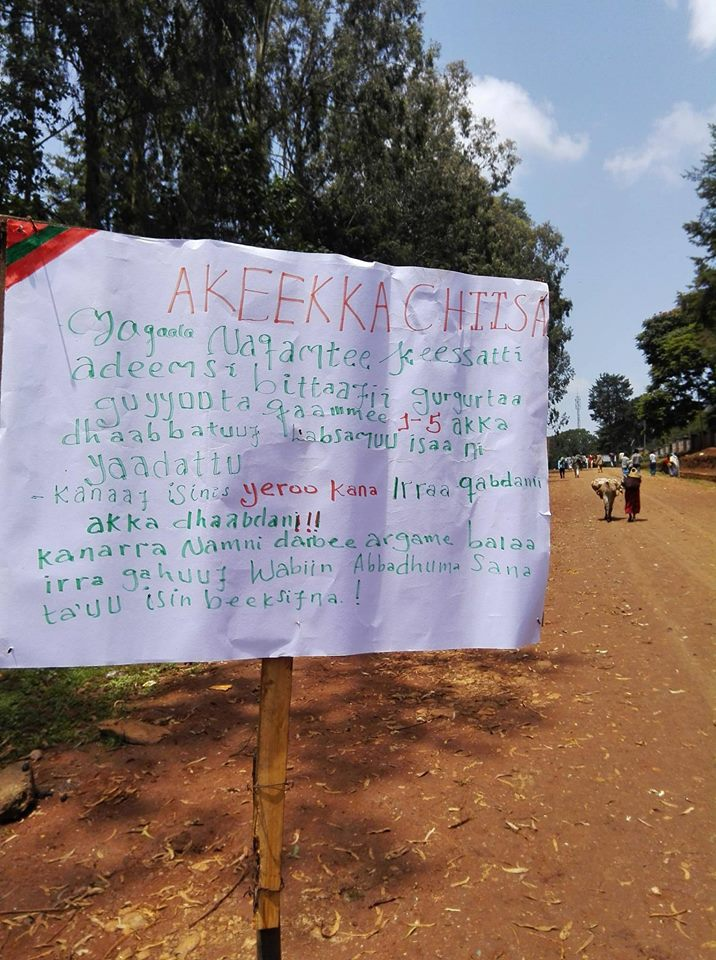 AKEEKKACHIISA
Magaala Naqamtee Keessatti
adeemsi bittaafii gurgurtaa
guyyoota qaammee 1-5 akka
dhaabbatuuf labsamuu isaa ni
yaadattu
- Kanaaf isinis yeroo kana irraa qabdanii
akka dhaabdani!!!
kanarra Namni darbee argame balaa
irra gahuuf Wabiin Abbadhuma Sana
ta'uu isin beeksifna.!